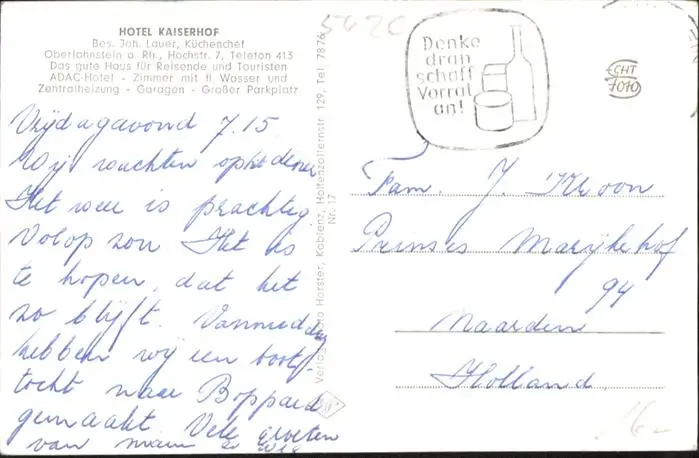 HOTEL KAISERHOF
Bes. Joh. Lauer, Küchenchef
Oberlahnstein a. Rh., Hochstr. 7, Telefon 413
Das gute Haus für Reisende und Touristen
ADAC-Hotel - Zimmer mit fl. Wasser und
Zentralheizung - Garagen - Großer Parkplatz
Vrijdagavond 7.15
Wij wachten op het diner
Het weer is prachtig
Volop zon Het is
te hopen, dat het
zo blijft. Vanmiddag
hebben wij een boot
tocht naar Boppard
gemaakt Vele groeten
van
Horster, Koblenz, Hohenzollernstr. 129, Tel. 7876
Nr. 17
542C
Denke
dran
schaff
Vorrat
an!
CHT
7070
Fam. J. Kroon
Prinses Marijkehof
94
Naarden
Holland
16-